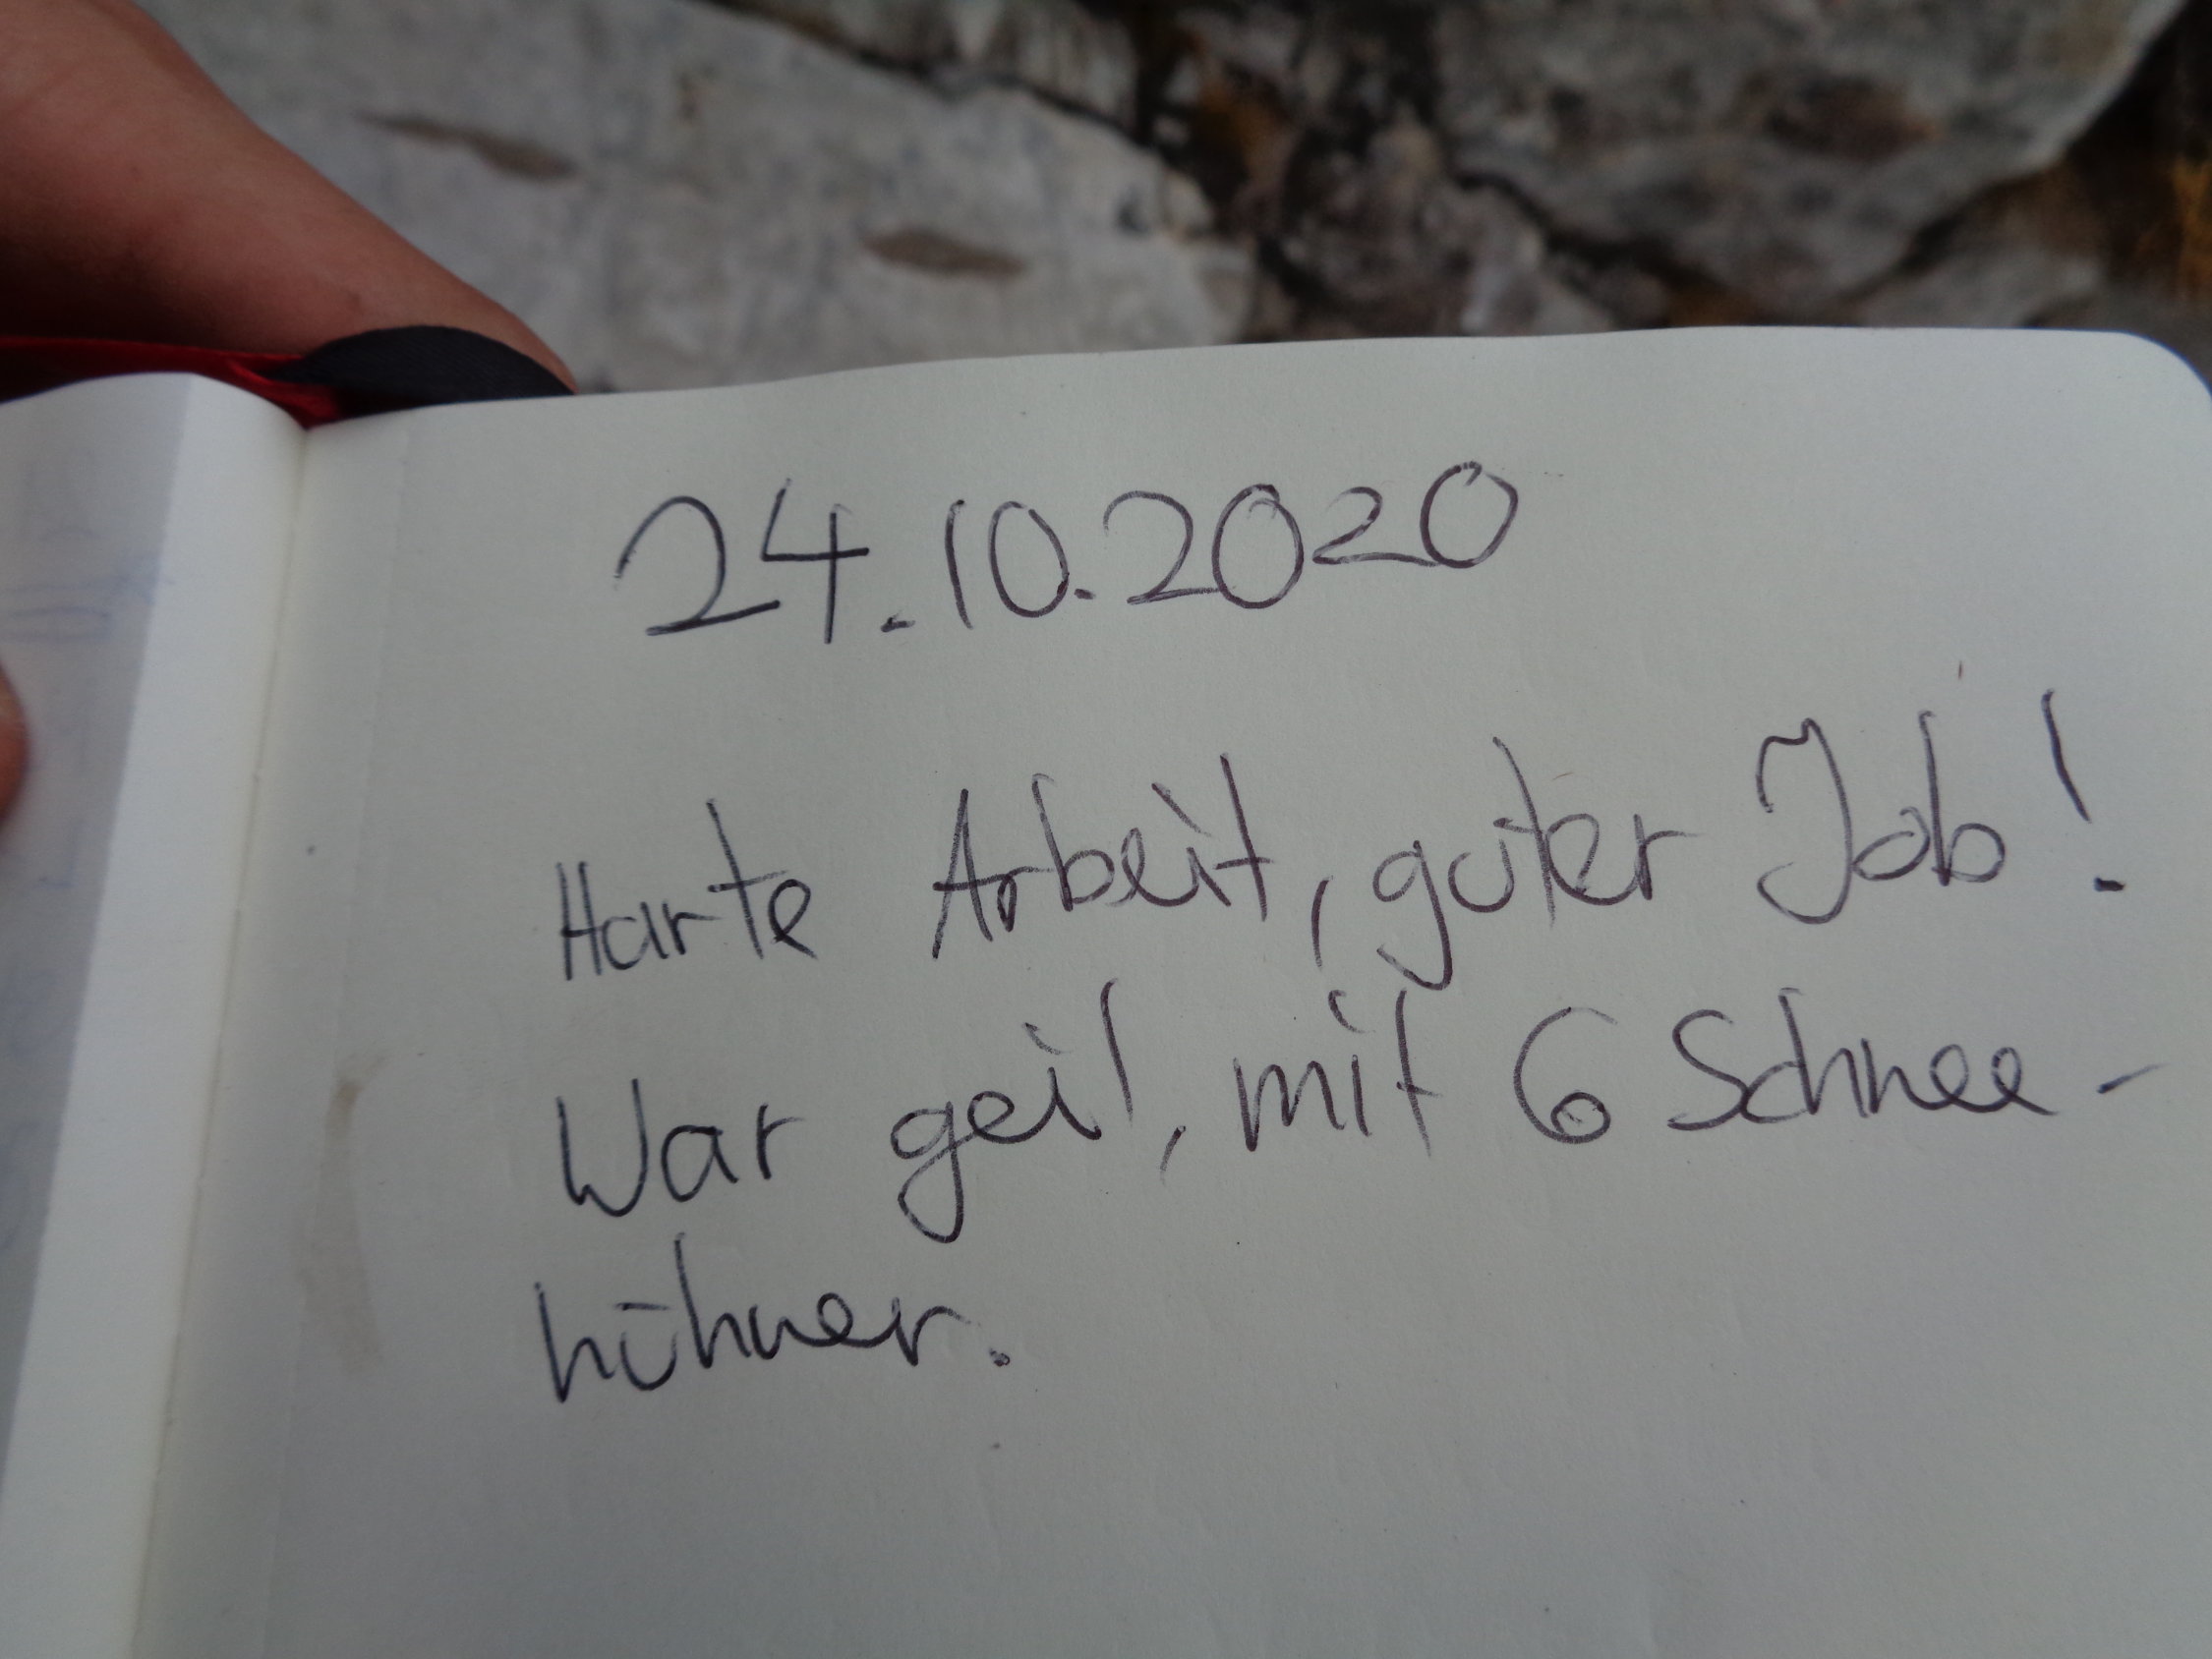 24.10.2020
Harte Arbeit, guter Job!
War geil, mit 6 Schnee-
hühner.